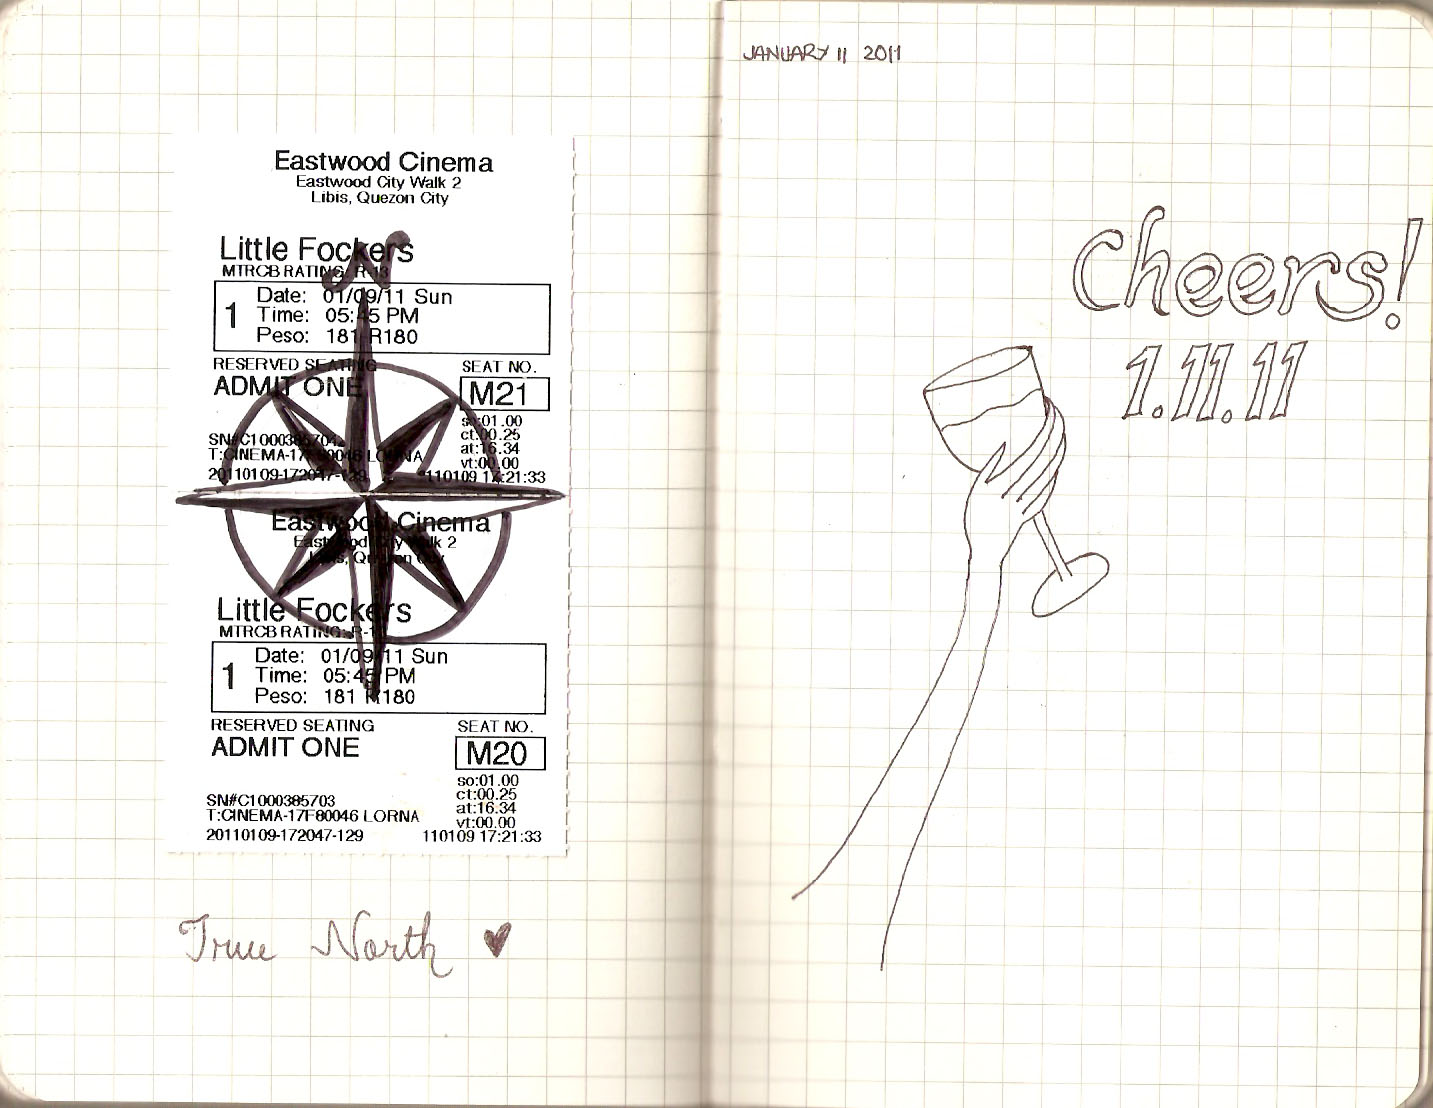 Eastwood Cinema
Eastwood City Walk 2
Libis, Quezon City
Little Fockers
MTRCB RATING: R-13
1
Date: 01/09/11 Sun
Time: 05:45 PM
Peso: 181 R180
RESERVED SEATING
ADMIT ONE
SEAT NO.
M21
so:01.00
ct:00.25
at:16.34
vt:00.00
T:CINEMA-17F80046 LORNA
20110109-172047-129 110109 17:21:33
N
Eastwood Cinema
Eastwood City Walk 2
Libis, Quezon City
Little Fockers
MTRCB RATING: R-13
1
Date: 01/09/11 Sun
Time: 05:45 PM
Peso: 181 R180
RESERVED SEATING
ADMIT ONE
SEAT NO.
M20
so:01.00
ct:00.25
at:16.34
vt:00.00
SN#C1000385703
T:CINEMA-17F80046 LORNA
20110109-172047-129 110109 17:21:33
True North
JANUARY 11 2011
Cheers!
1.11.11